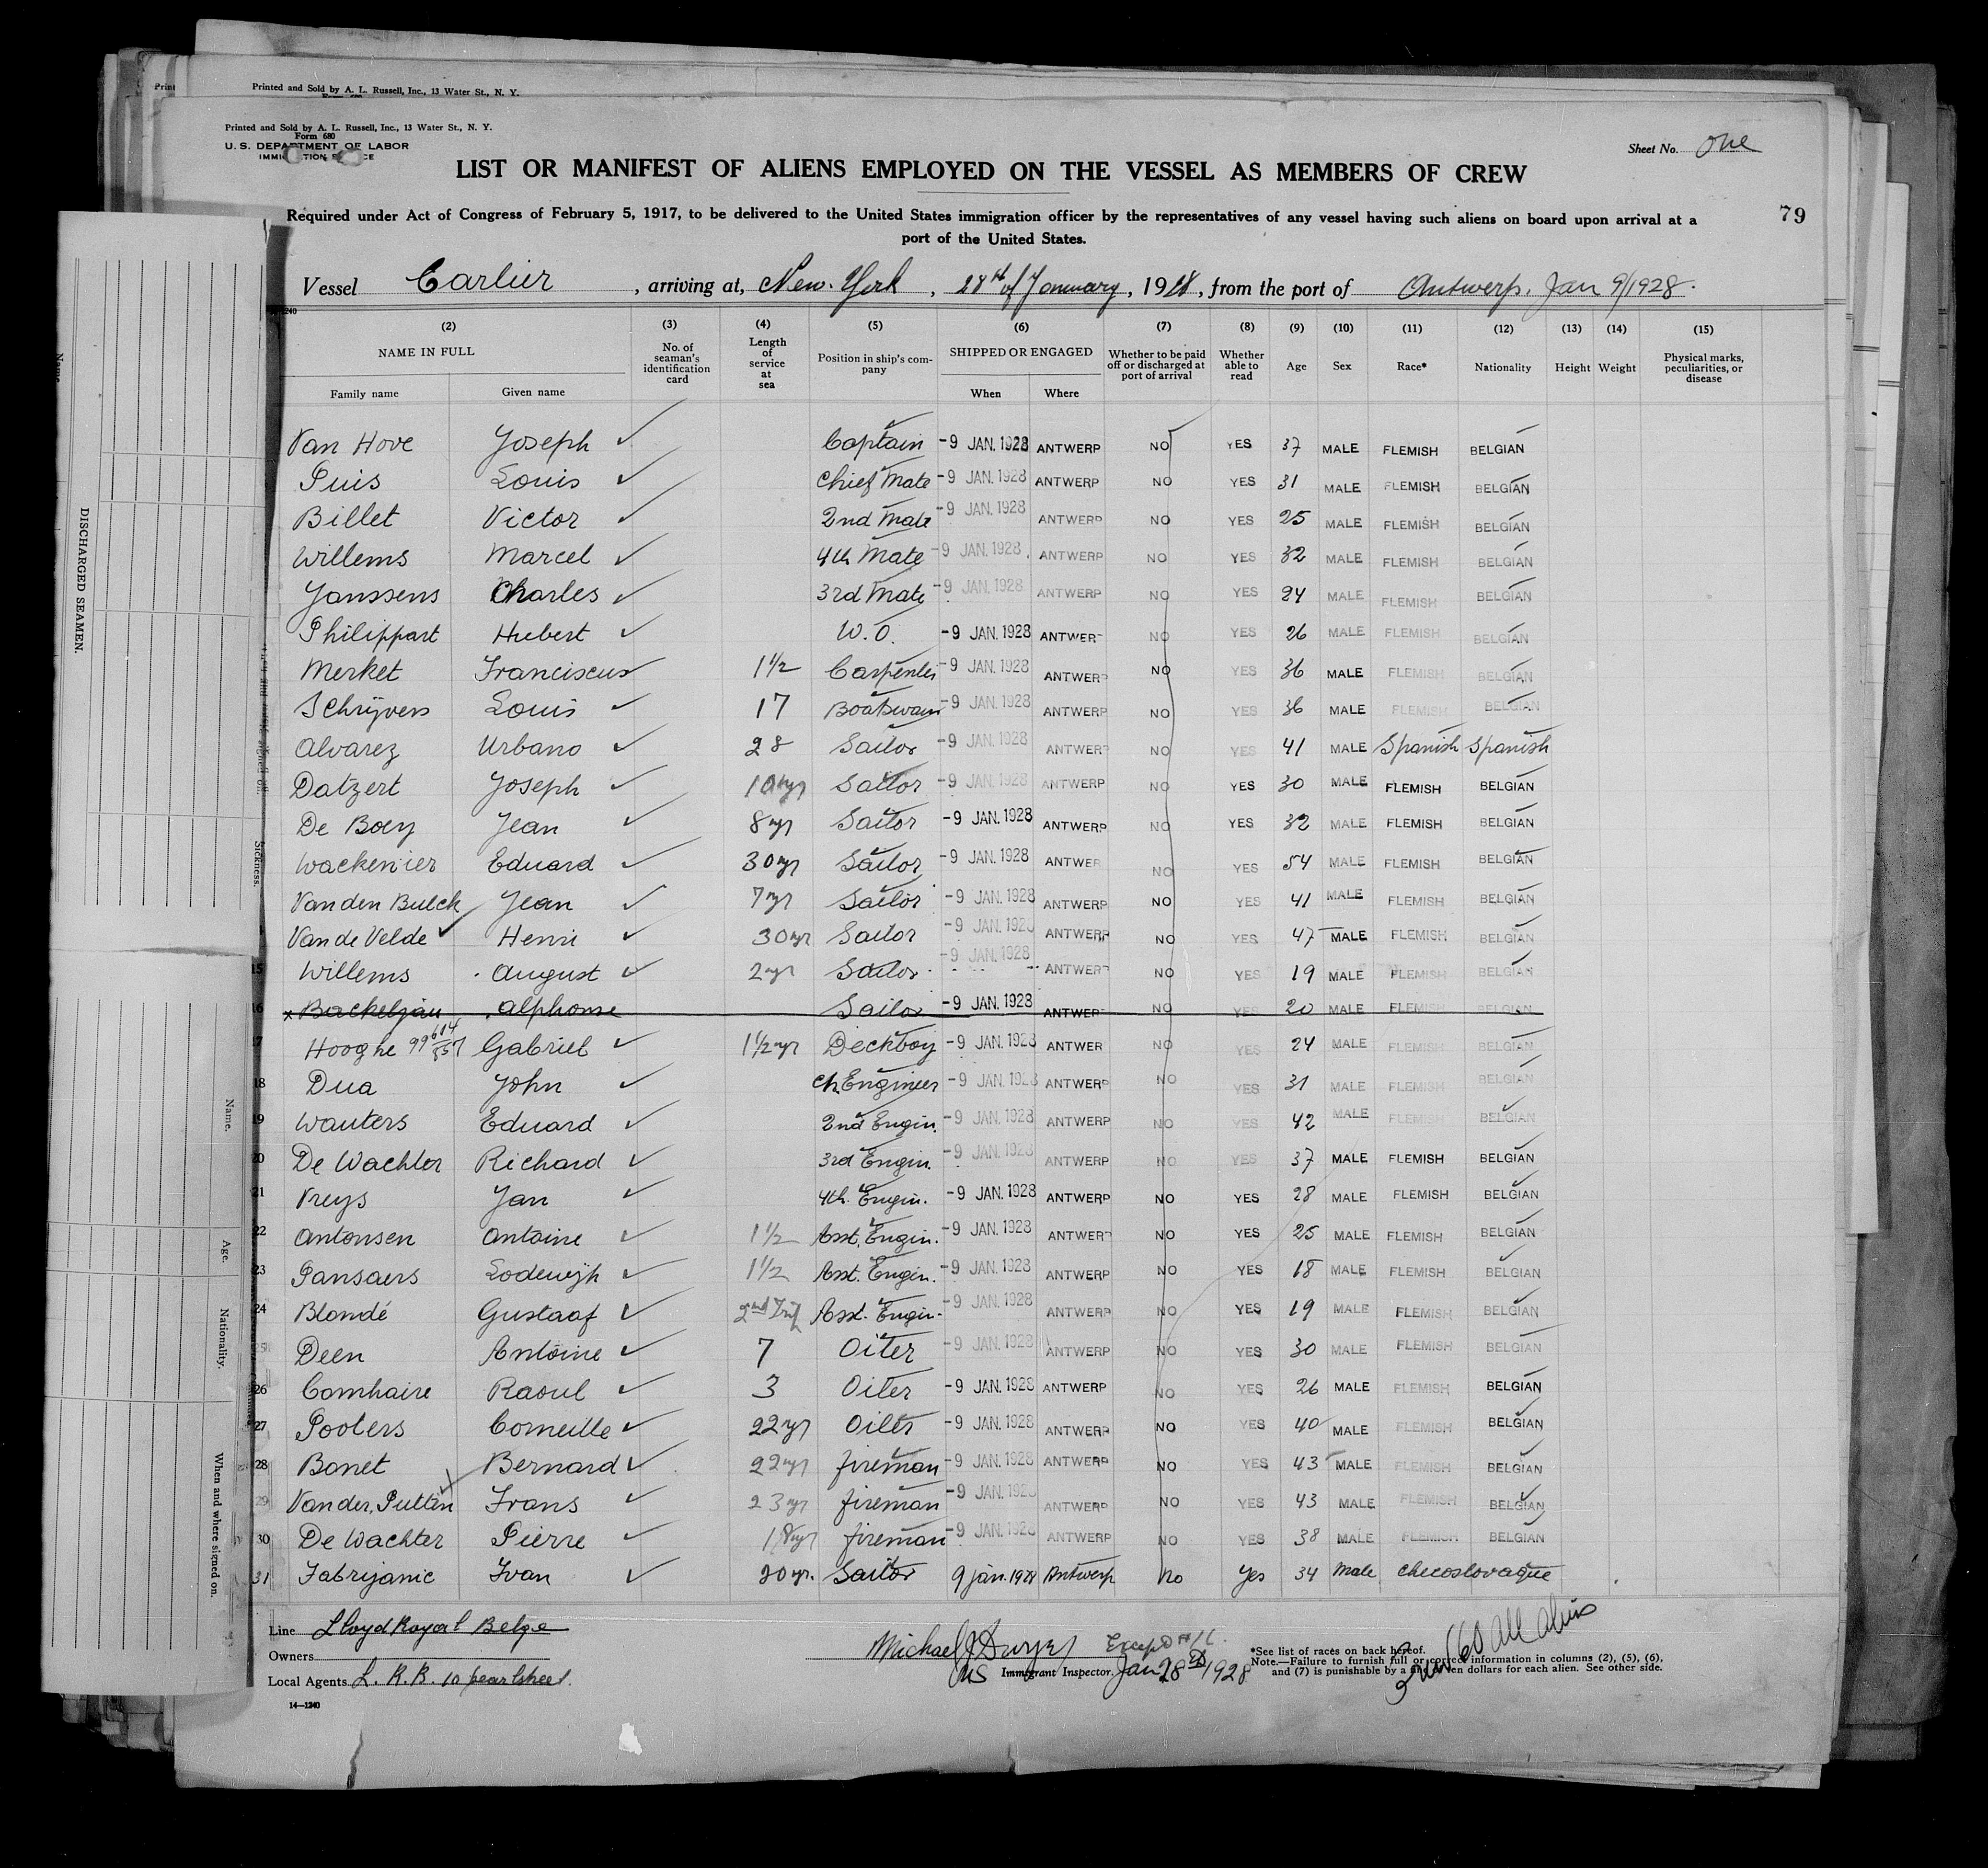 Printed and Sold by A. L. Russell, Inc., 13 Water St., N. Y.
Printed and Sold by A. L. Russell, Inc., 13 Water St., N. Y.
Form 680
U. S. DEPARTMENT OF LABOR
Sheet No. one
LIST OR MANIFEST OF ALIENS EMPLOYED ON THE VESSEL AS MEMBERS OF CREW
Required under Act of Congress of February 5, 1917, to be delivered to the United States immigration officer by the representatives of any vessel having such aliens on board upon arrival at a
port of the United States.
79
Vessel Carlier, arriving at, New-York, 28th of January, 1928, from the port of Antwerp, Jan 9/1928.
(2) (3) (4) (5) (6) (7) (8) (9) (10) (11) (12) (13) (14) (15)
NAME IN FULL No. of seaman's identification card Length of service at sea Position in ship's company SHIPPED OR ENGAGED Whether to be paid off or discharged at port of arrival Whether able to read Age Sex Race* Nationality Height Weight Physical marks, peculiarities, or disease
Family name Given name When Where
Van Hove Joseph Captain -9 JAN. 1928 ANTWERP NO YES 37 MALE FLEMISH BELGIAN
Puis Louis Chief Mate -9 JAN. 1928 ANTWERP NO YES 31 MALE FLEMISH BELGIAN
Billet Victor 2nd Mate -9 JAN. 1928 ANTWERP NO YES 25 MALE FLEMISH BELGIAN
Willems Marcel 4th Mate -9 JAN. 1928 ANTWERP NO YES 32 MALE FLEMISH BELGIAN
Janssens Charles 3rd Mate -9 JAN. 1928 ANTWERP NO YES 24 MALE FLEMISH BELGIAN
Philippart Hubert W.O. -9 JAN. 1928 ANTWERP NO YES 26 MALE FLEMISH BELGIAN
Merket Franciscus 1 1/2 Carpenter -9 JAN. 1928 ANTWERP NO YES 36 MALE FLEMISH BELGIAN
Schrijvers Louis 17 Boatswain -9 JAN. 1928 ANTWERP NO YES 36 MALE FLEMISH BELGIAN
Alvarez Urbano 28 Sailor -9 JAN. 1928 ANTWERP NO YES 41 MALE Spanish Spanish
Datzert Joseph 10 yr Sailor -9 JAN. 1928 ANTWERP NO YES 30 MALE FLEMISH BELGIAN
De Boey Jean 8 yr Sailor -9 JAN. 1928 ANTWERP NO YES 32 MALE FLEMISH BELGIAN
Wackenier Eduard 30 yr Sailor -9 JAN. 1928 ANTWERP NO YES 54 MALE FLEMISH BELGIAN
Van den Bulck Jean 7 yr Sailor -9 JAN. 1928 ANTWERP NO YES 41 MALE FLEMISH BELGIAN
Van de Velde Henri 30 yr Sailor -9 JAN. 1928 ANTWERP NO YES 47 MALE FLEMISH BELGIAN
15 Willems August 2 yr Sailor -9 JAN. 1928 ANTWERP NO YES 19 MALE FLEMISH BELGIAN
16 x Backeljau Alphonse Sailor -9 JAN. 1928 ANTWERP NO YES 20 MALE FLEMISH BELGIAN
17 Hooghe 99 614/857 Gabriel 1 1/2 yr Deckboy -9 JAN. 1928 ANTWER NO YES 24 MALE FLEMISH BELGIAN
18 Dua John Ch. Engineer -9 JAN. 1928 ANTWERP NO YES 31 MALE FLEMISH BELGIAN
19 Wauters Eduard 2nd Engin. -9 JAN. 1928 ANTWERP NO YES 42 MALE FLEMISH BELGIAN
20 De Wachter Richard 3rd Engin. -9 JAN. 1928 ANTWERP NO YES 37 MALE FLEMISH BELGIAN
21 Vreys Jan 4th. Engin. -9 JAN. 1928 ANTWERP NO YES 28 MALE FLEMISH BELGIAN
22 Antonsen Antoine 1 1/2 Asst. Engin. -9 JAN. 1928 ANTWERP NO YES 25 MALE FLEMISH BELGIAN
23 Pansaers Lodewijk 1 1/2 Asst. Engin. -9 JAN. 1928 ANTWERP NO YES 18 MALE FLEMISH BELGIAN
24 Blondé Gustaaf 2nd Trip Asst. Engin. -9 JAN. 1928 ANTWERP NO YES 19 MALE FLEMISH BELGIAN
25 Deen Antoine 7 Oiler -9 JAN. 1928 ANTWERP NO YES 30 MALE FLEMISH BELGIAN
26 Comhaire Raoul 3 Oiler -9 JAN. 1928 ANTWERP NO YES 26 MALE FLEMISH BELGIAN
27 Pooters Corneille 22 yr Oiler -9 JAN. 1928 ANTWERP NO YES 40 MALE FLEMISH BELGIAN
28 Bonet Bernard 22 yr fireman -9 JAN. 1928 ANTWERP NO YES 43 MALE FLEMISH BELGIAN
29 Van der Putten Frans 23 yr fireman -9 JAN. 1928 ANTWERP NO YES 43 MALE FLEMISH BELGIAN
30 De Wachter Pierre 18 yr fireman -9 JAN. 1928 ANTWERP NO YES 38 MALE FLEMISH BELGIAN
31 Fabrijanic Ivan 20 yr. Sailor 9 jan. 1928 Antwerp No Yes 34 Male checoslovaque
Line Lloyd Royal Belge
Owners
Local Agents L. R. B. 10 pearlstreet.
Michael J Dwyer Except #16.
US Immigrant Inspector. Jan 28th 1928
all aliens
*See list of races on back hereof.
Note.—Failure to furnish full or correct information in columns (2), (5), (6),
and (7) is punishable by a fine of ten dollars for each alien. See other side.
14—1240
DISCHARGED SEAMEN.
Sickness.
Name.
Age.
Nationality.
When and where signed on.